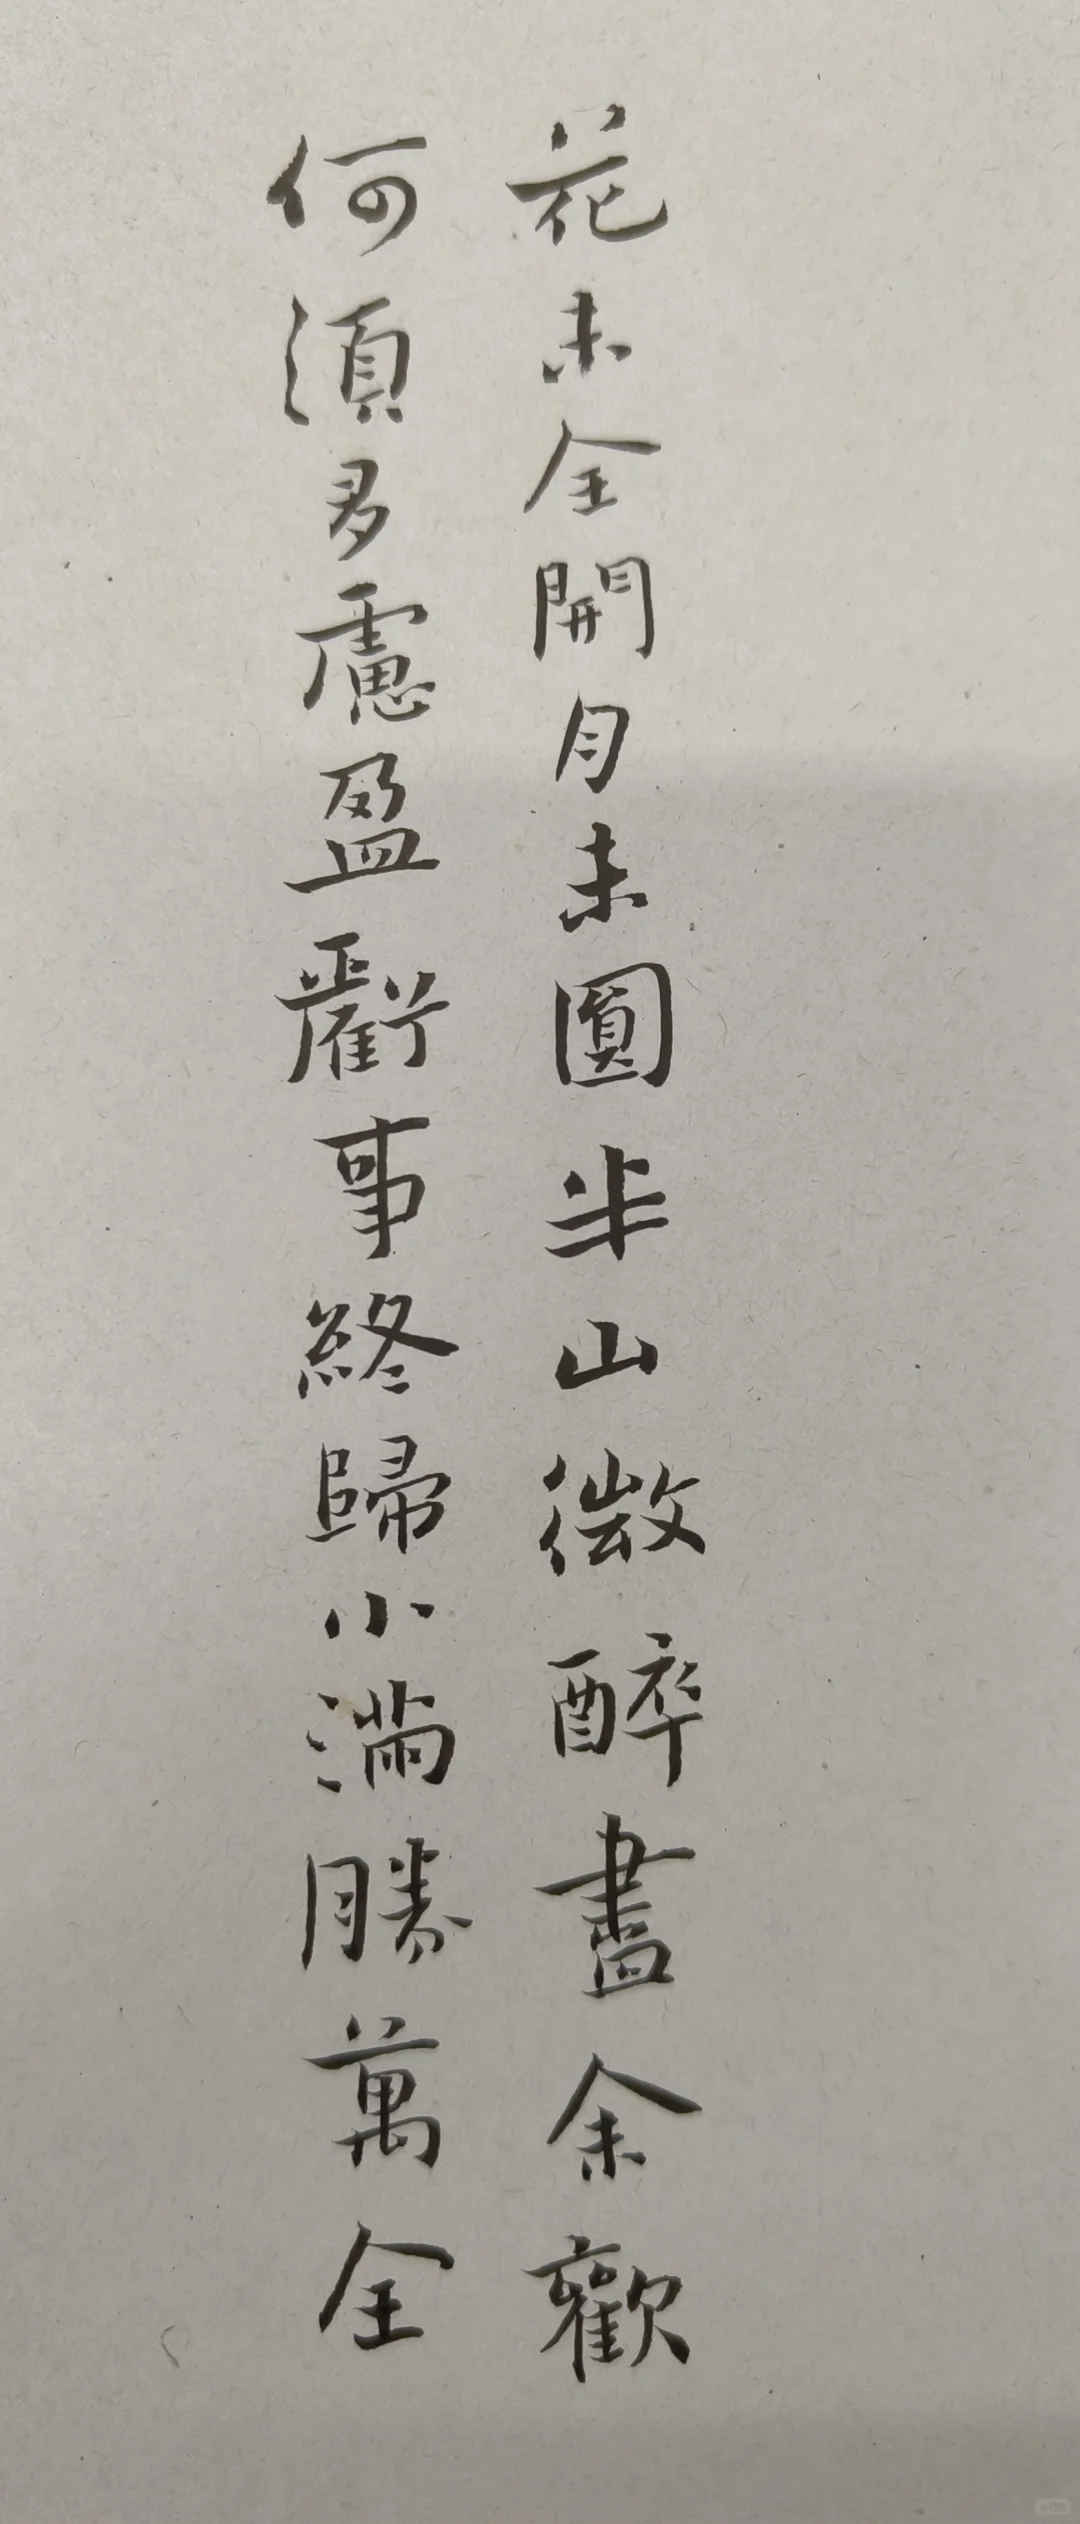 花未全開月未圓半山微醉盡余歡
何須多慮盈虧事終歸小滿勝萬全